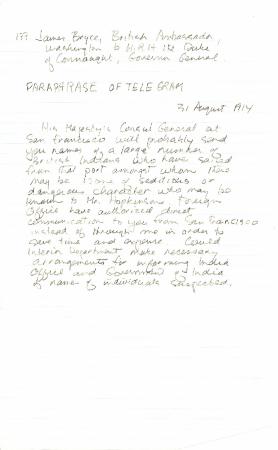 199 James Bryce, British Ambassador,
Washington to H.R.H the Duke
of Connaught, Governor General.
PARAPHRASE OF TELEGRAM
31 August 1914
His Majesty's Consul General at
San Francisco will probably send
you names of a large number of
British Indians who have sailed
from that port amongst whom there
may be some of seditious or
dangerous character who may be
known to Mr. Hopkinson. Foreign
Office have authorized direct
communication to you from San Francisco
instead of through me in order to
save time and expense. Could
Interior Department make necessary
arrangements for informing India
Office and Government of India
of names of individuals suspected.